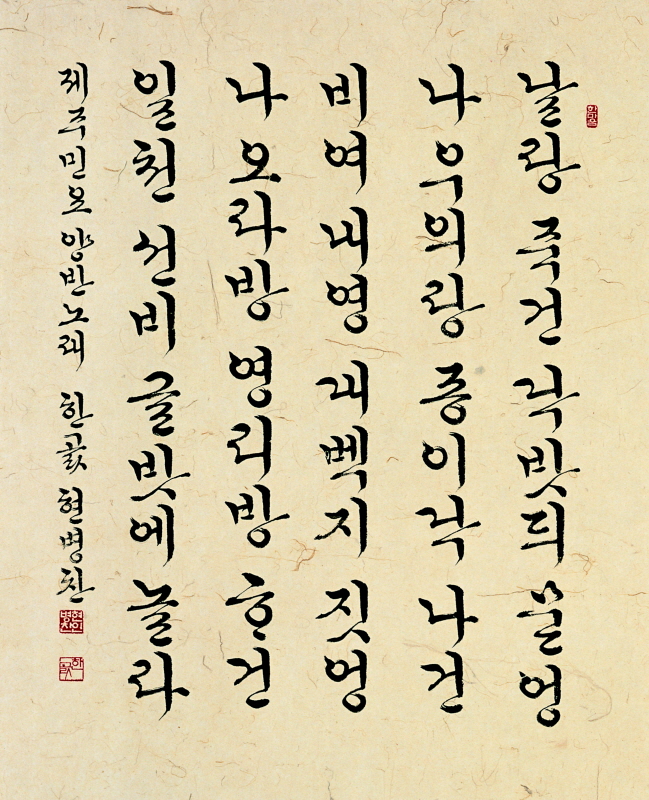 날랑 죽건 닥밧듸 묻엉
나 우의랑 종이닥 나건
비여 내영 대벡지 짓엉
나오라방 영리방 ᄒᆞ건
일천 선비 글밧에 놀라
제주민요 양반노래 한곬 현병찬